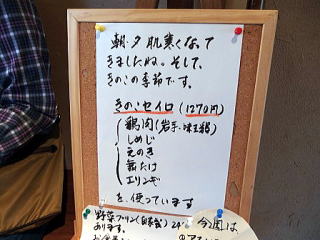 朝・夕 肌寒くなって
きましたね。そして、
きのこの季節です。
きのこセイロ (1270円)
鶏肉(岩手・味王鶏)
しめじ
えのき
舞たけ
エリンギ
を使っています
野菜プリン(自家製)
あります。
今週は